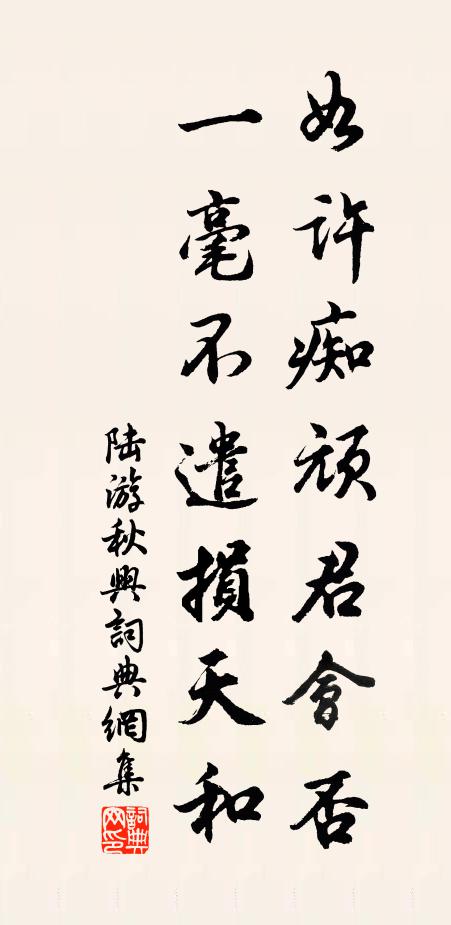 如许痴顽君會否
一毫不遣損天和
陆游秋興詞典網集
詞典网印